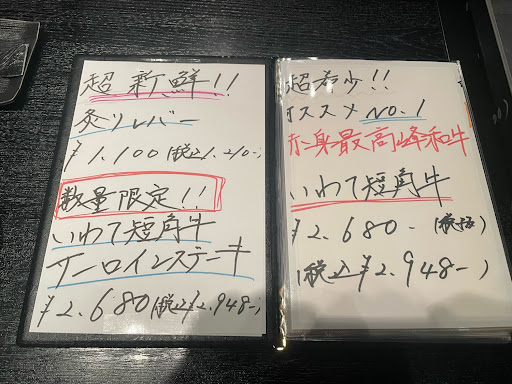 超新鮮!!
炙りレバー
¥1.100(税込1.210-)
数量限定!!
いわて短角牛
サーロインステーキ
¥2.680(税込¥2.948-)
超希少!!
オススメNO.1
赤身最高峰和牛
いわて短角牛
¥2.680-(税抜)
(税込¥2.948-)